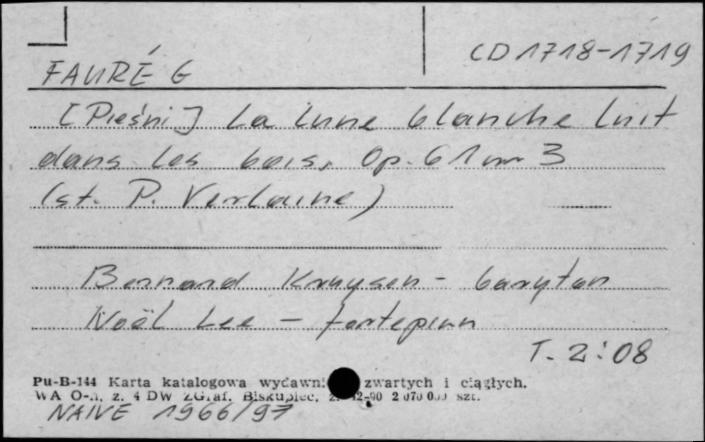 CD 1718-1719
FAURÉ G
[Pieśni] La lune blanche luit
dans les bois, Op. 61 nr 3
(st. P. Verlaine)
Bernard Kruysen - baryton
Noël Lee - fortepian
T. 2:08
Pu-B-144 Karta katalogowa wydawni zwartych i ciągłych.
WA O-n, z. 4 DW ZGraf. Biskupiec, z. 12-90 2 070 000 szt.
NAIVE 1966/97